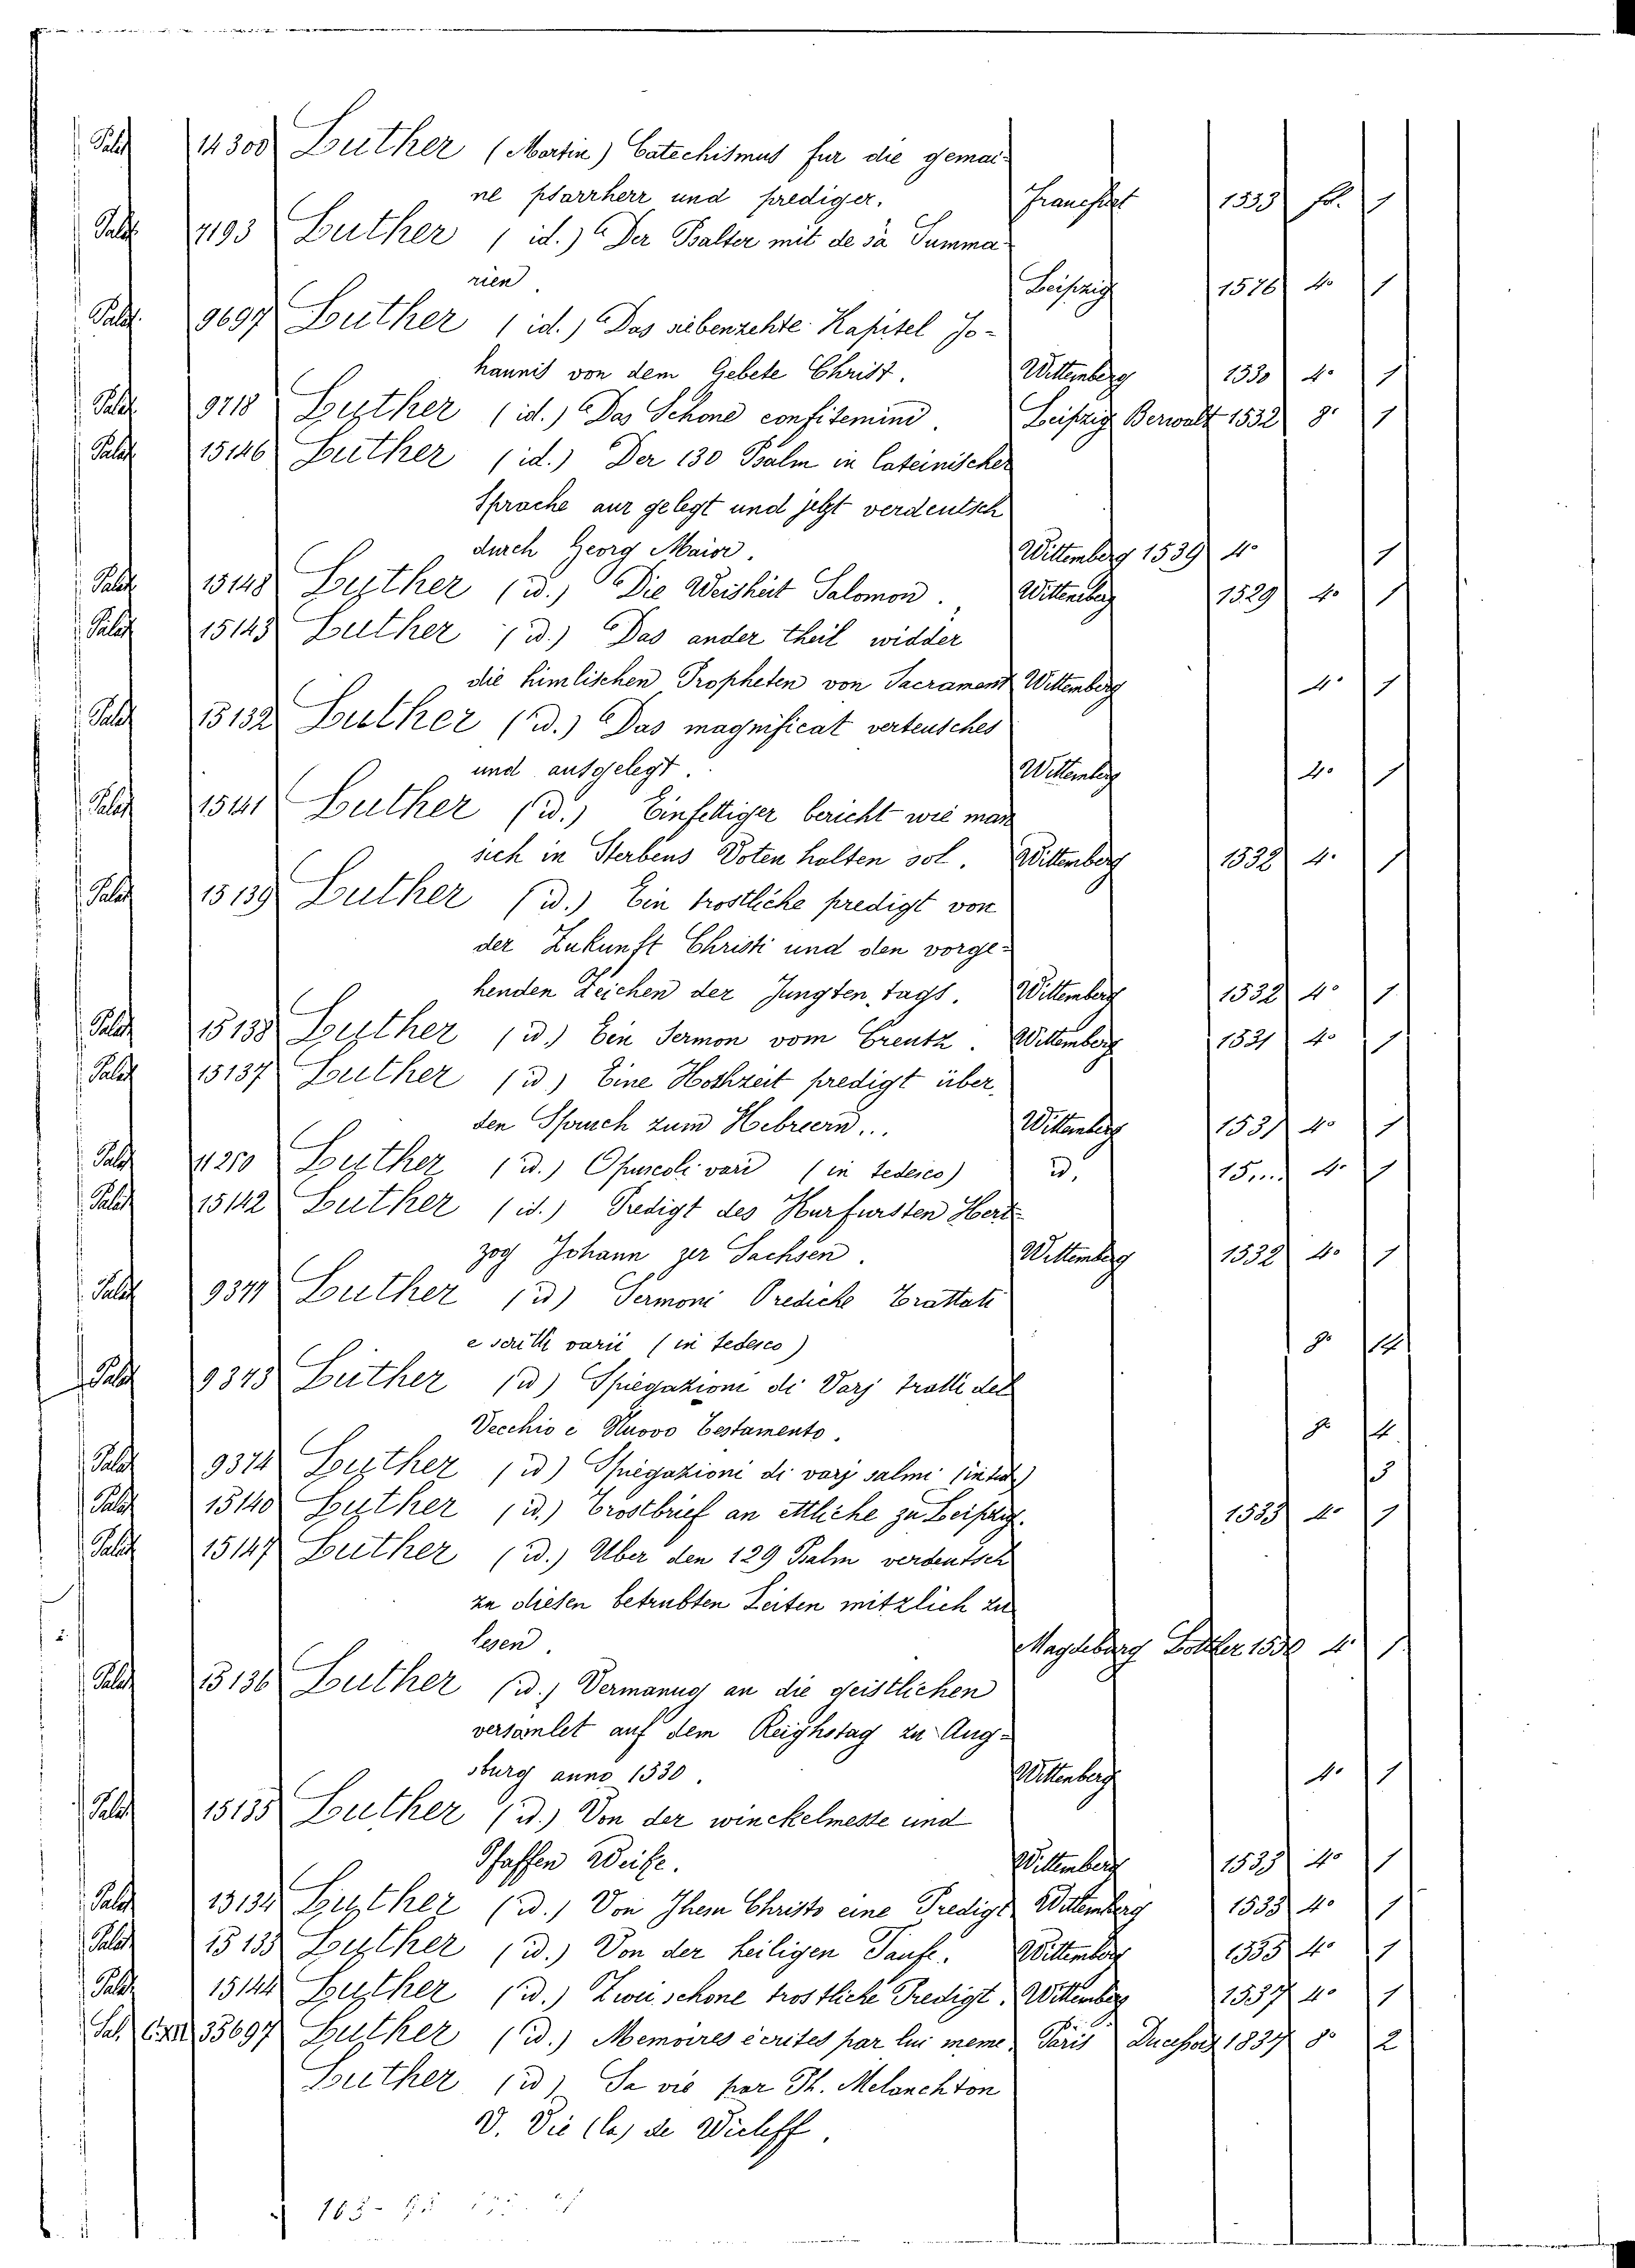 Palat 14300 Luther (Martin) Catechismus fur die gemai-
ne pfarrherr und prediger. Francfurt 1553 fol. 1
Palat 4193 Luther (id.) Der Psalter mit de sa Summa
rien Leipzig 1576 4° 1
Palat. 9697 Luther (id.) Das siebenzehte Kapitel Jo-
hannis von dem Gebete Christ. Wittemberg 1530 4° 1
Palat 9718 Luther (id.) Das Schone confitemini. Leipzig Berwalt 1532 8° 1
Palat 15146 Luther (id.) Der 130 Psalm in lateinischer
Sprache aur gelegt und jetzt verdeutsch
durch Georg Maior. Wittemberg 1539 4° 1
Palat 15148 Luther (id.) Die Weisheit Salomon. Wittemberg 1529 4° 1
Palat 15143 Luther (id.) Das ander theil widder
die himlischen Propheten von Sacrament Wittemberg 4° 1
Palat 15132 Luther (id.) Das magnificat verteusches
und ausgelegt. Wittemberg 4° 1
Palat 15141 Luther (id.) Einfettiger bericht wie man
sich in Sterbens Doten halten sol. Wittemberg 1538 4° 1
Palat 15139 Luther (id.) Ein trostliche predigt von
der Zukunft Christi und den vorge-
henden Zeichen der Jungten tags. Wittemberg 1532 4° 1
Palat 15138 Luther (id.) Ein Sermon vom Creutz. Wittemberg 1531 4° 1
Palat 15137 Luther (id.) Eine Hothzeit predigt über
den Spruch zum Hebreern... Wittemberg 1531 4° 1
Palat 11250 Luther (id.) Opuscoli varii (in tedesco) id. 15.... 4° 1
Palat 15142 Luther (id.) Predigt des Hurfursten Hert-
zog Johann zer Sachsen. Wittemberg 1532 4° 1
Palat 9344 Luther (id) Sermoni Prediche Trattati
e scritti varii (in tedesco) 8° 14
Palat 9343 Luther (id) Spiegazioni di Varj tratti del
Vecchio e Nuovo Testamento. 8° 4
Palat 9374 Luther (id) Spiegazioni di varj salmi (in ted) 3
Palat 15140 Luther (id.) Trostbrief an ettliche zu Leipzig. 1533 4° 1
Palat 15147 Luther (id.) Uber den 129 Psalm verdeutsch
zu diesen betrubten Zeiten mitzlich zu
lesen. Magdeburg Lotther 1550 4° 1
Palat 15136 Luther (id.) Vermanug an die geistlichen
versamlet auf dem Reighstag zu Aug-
sburg anno 1530. Wittenberg 4° 1
Palat 15135 Luther (id.) Von der winckelmesse und
Pfaffen Weihe. Wittemberg 1533 4° 1
Palat 15134 Luther (id.) Von Jhem Christo eine Predigt Wittemberg 1533 4° 1
Palat 15133 Luther (id.) Von der heiligen Taufe. Wittemberg 1535 4° 1
Palat 15144 Luther (id.) Zwei schone trostliche Predigt. Wittemberg 1537 4° 1
Sal. CXII 35697 Luther (id.) Memoires écrites par lui meme. Paris 1837 8° 2
Luther (id) Sa vie par Ph. Melanchton
V. Vie (la) de Wicleff.